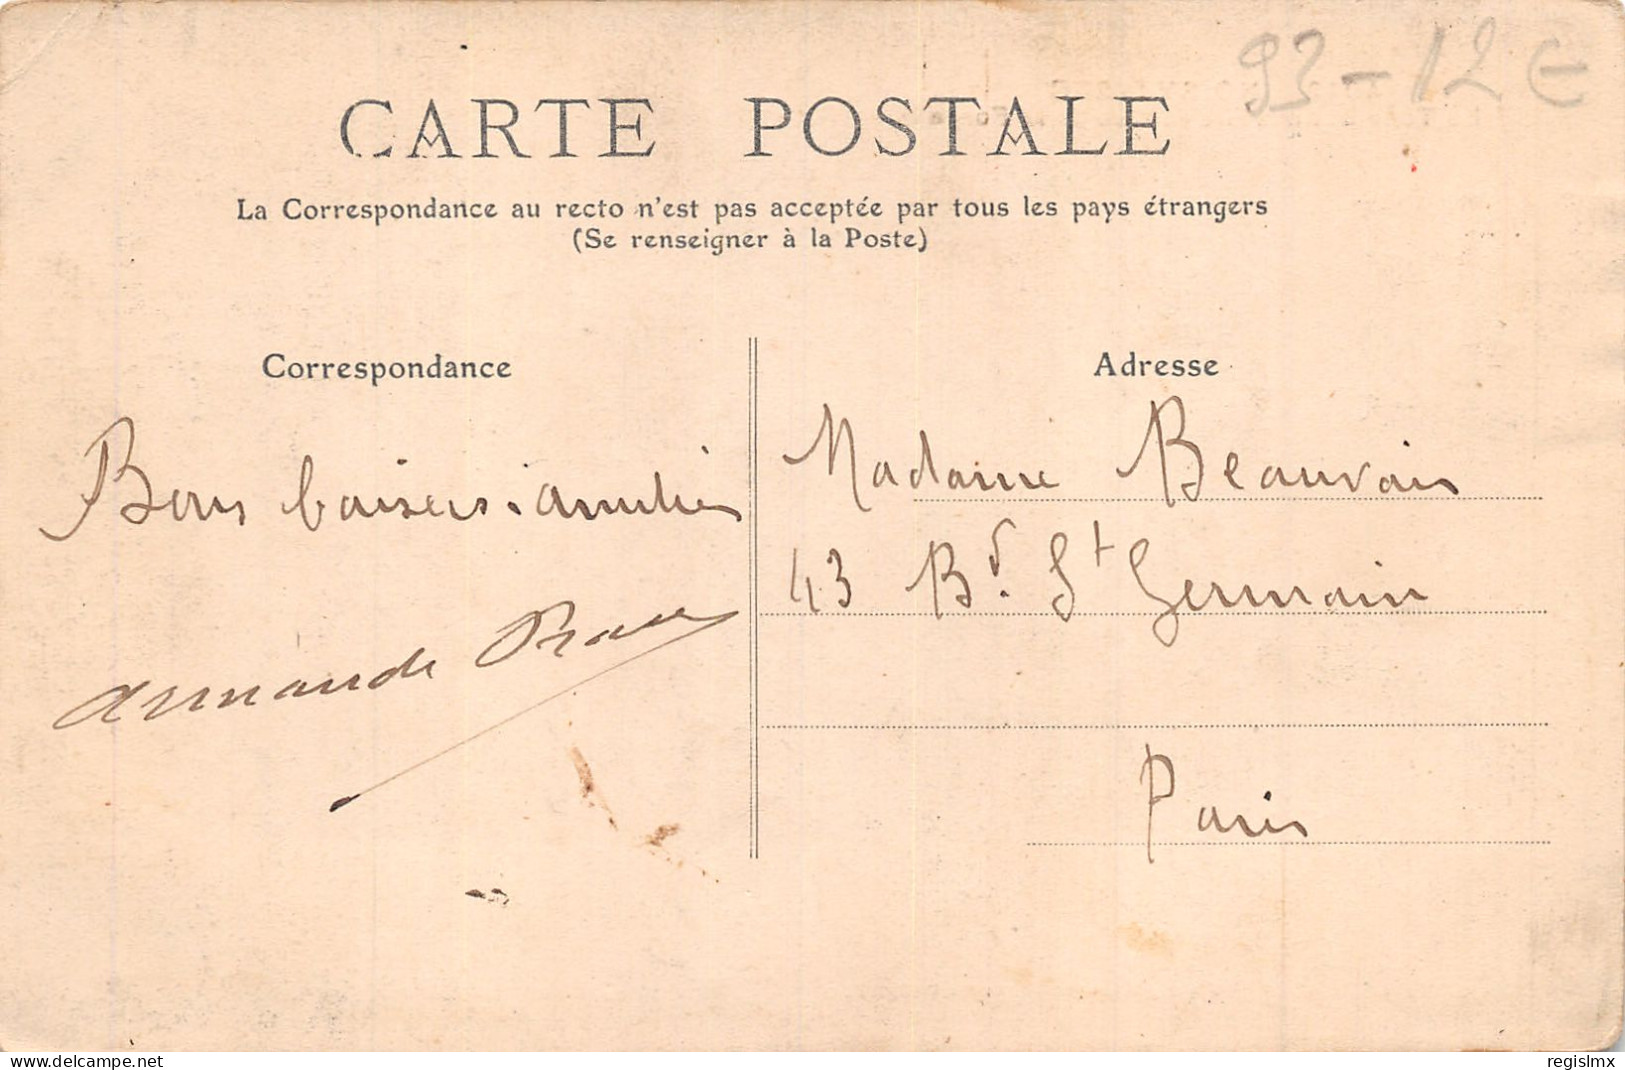 93-12€
CARTE POSTALE
La Correspondance au recto n'est pas acceptée par tous les pays étrangers
(Se renseigner à la Poste)
Correspondance
Adresse
Bons baisers. amitiés
Armande
Madame Beauvais
43 Bd. St Germain
Paris
www.delcampe.net
regislmx